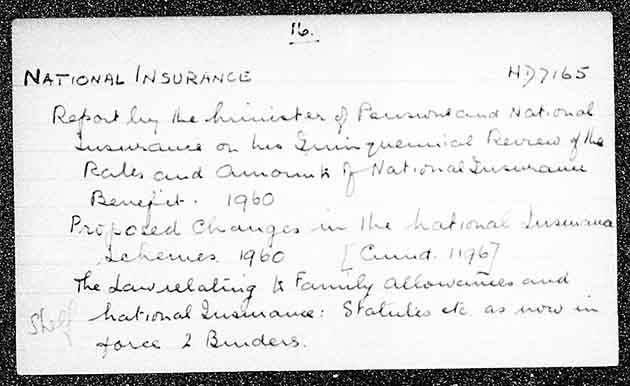 16.
NATIONAL INSURANCE HD7165
Report by the Minister of Pensions and National
Insurance on his Quinquennial Review of the
Rates and Amounts of National Insurance
Benefit. 1960
Proposed Changes in the National Insurance
Schemes. 1960 [Cmnd. 1196]
The Law relating to Family Allowances and
National Insurance: Statutes etc. as now in
Shelf
force 2 Binders.